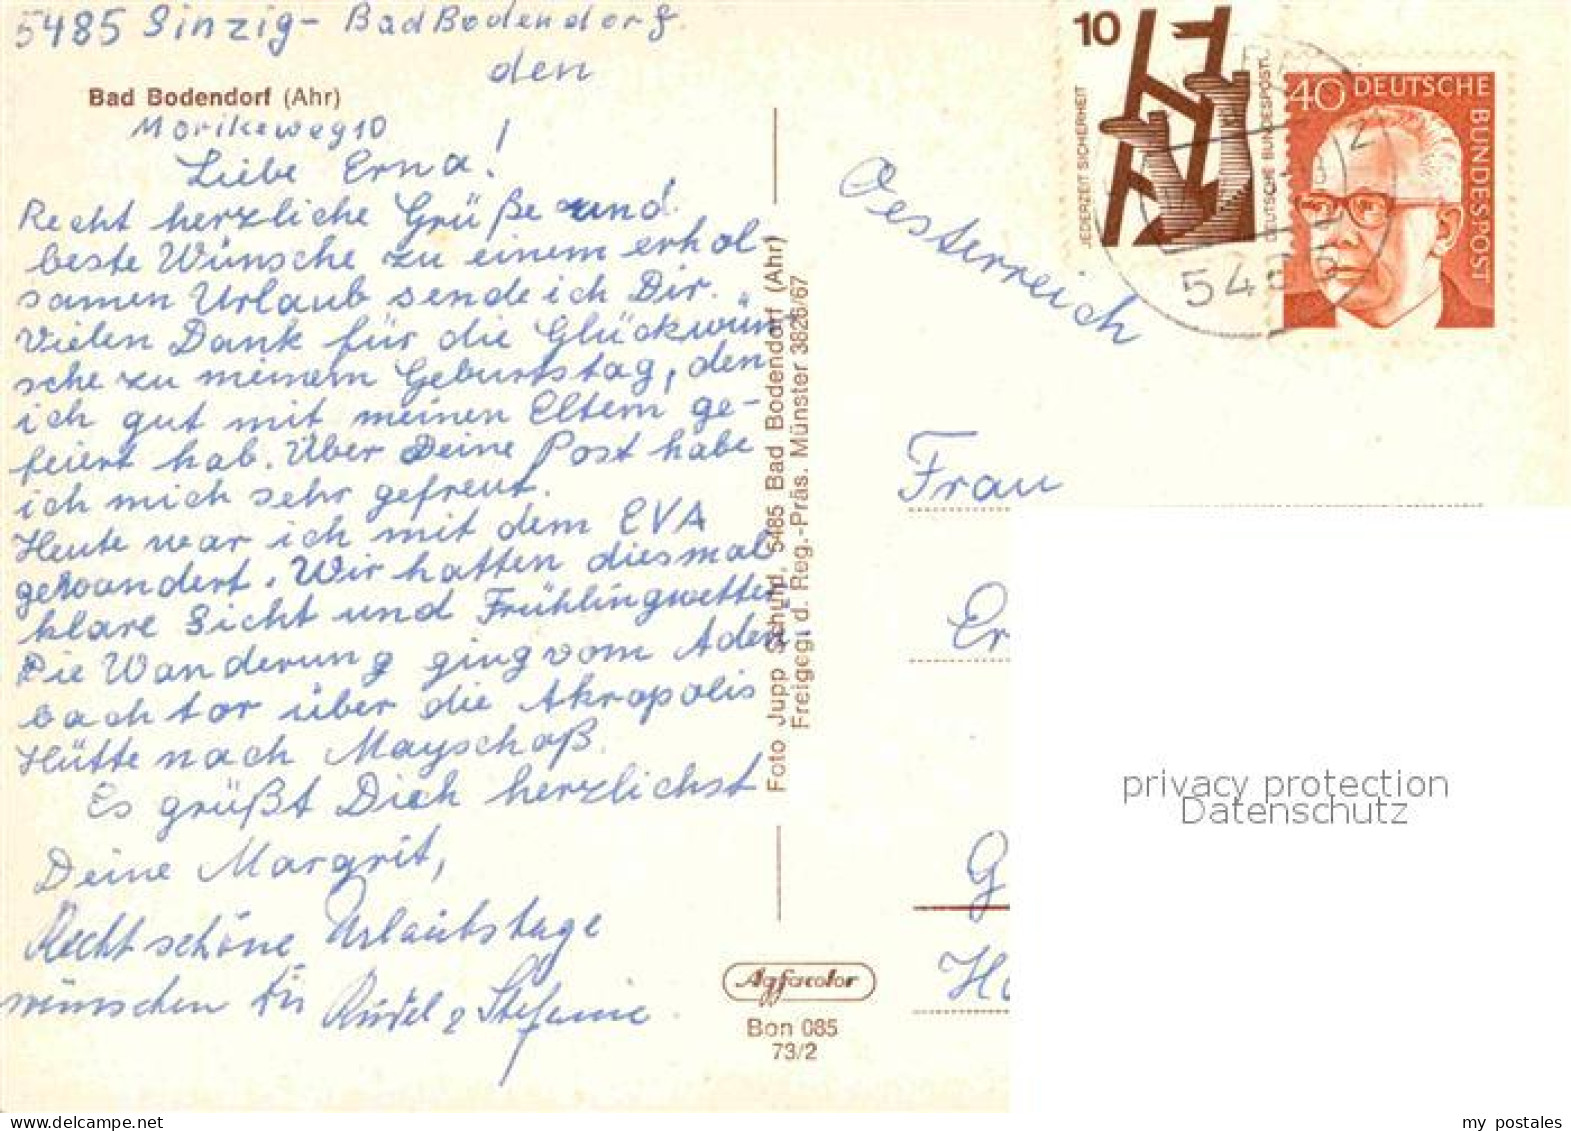 5485 Sinzig - Bad Bodendorf
den
Bad Bodendorf (Ahr)
Morikeweg 10
Liebe Erna!
Recht herzliche Grüße und
beste Wünsche zu einem erhol-
samen Urlaub sende ich Dir.
Vielen Dank für die Glückwün-
sche zu meinem Geburtstag, den
ich gut mit meinen Eltern ge-
feiert hab. Über Deine Post habe
ich mich sehr gefreut.
Heute war ich mit dem EVA
gewandert. Wir hatten diesmal
klare Sicht und Frühlingwetter
Die Wanderung ging vom Aden-
bachtor über die Akropolis
Hütte nach Mayschoß.
Es grüßt Dich herzlichst
Deine Margrit,
Recht schöne Urlaubstage
wünschen Dir Stefanie
Foto Jupp Schuld, 5485 Bad Bodendorf (Ahr)
Freigeg. d. Reg.-Präs. Münster 3826/67
Agfacolor
Bon 085
73/2
10
JEDERZEIT SICHERHEIT
DEUTSCHE BUNDESPOST
40 DEUTSCHE
BUNDESPOST
2
Oesterreich
Frau
Er
G
privacy protection
Datenschutz
my postales
delcampe.net